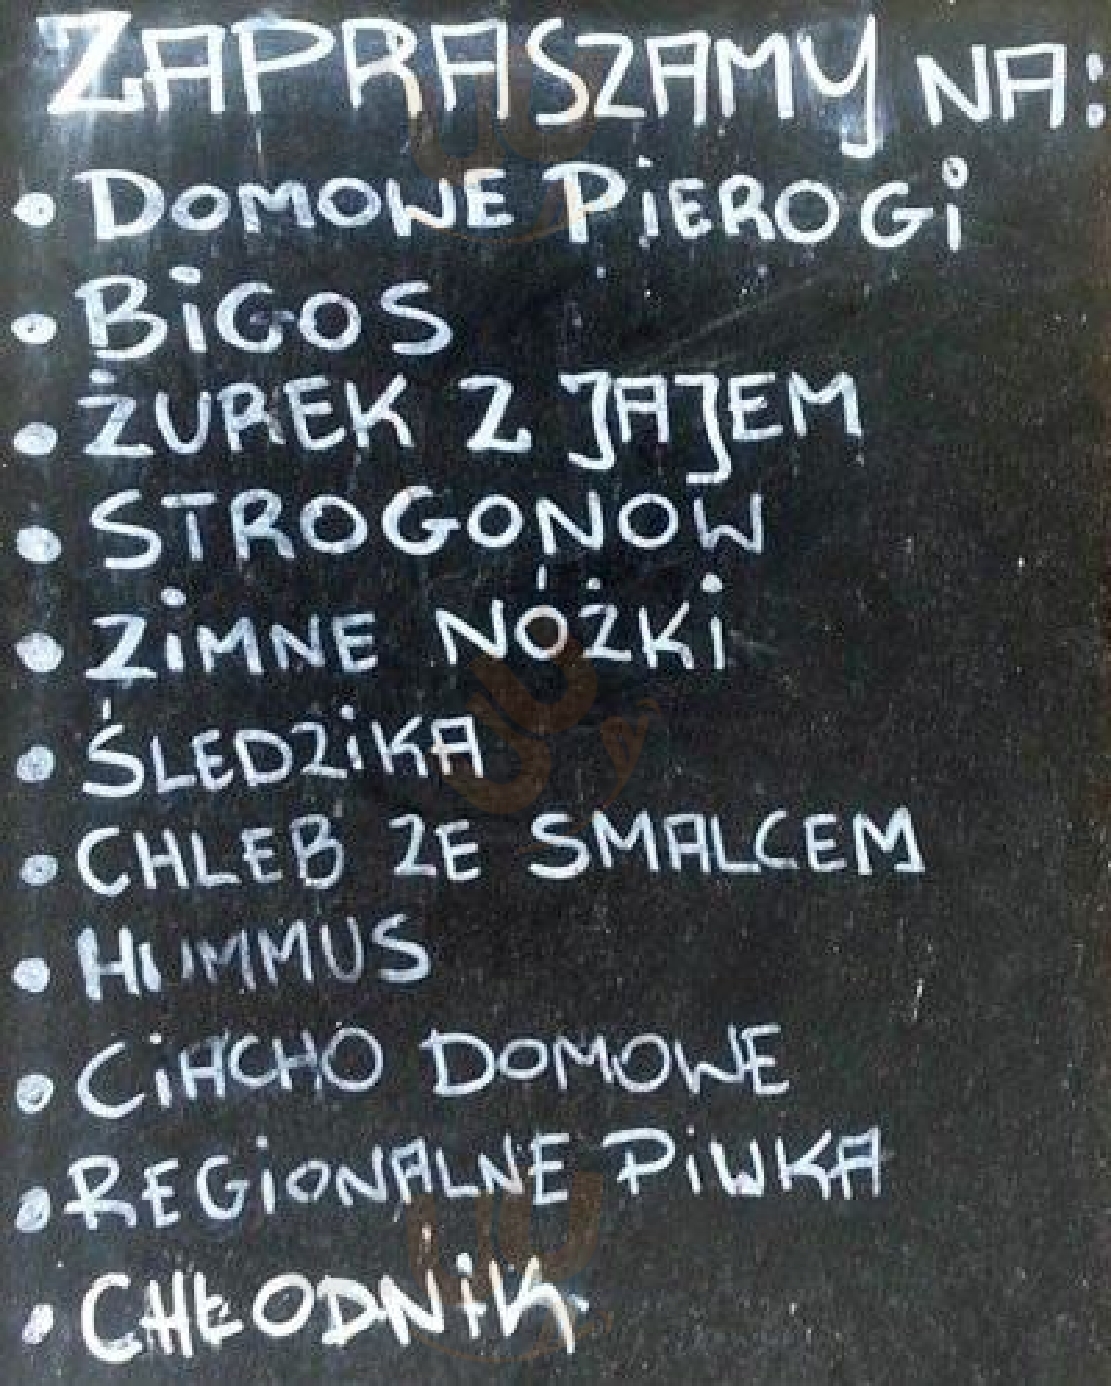 ZAPRASZAMY NA:
• DOMOWE PiEROGi
• BiGOS
• ŻUREK Z JAJEM
• STROGONOW
• ZiMNE NÓŻKi
• ŚLEDZiKA
• CHLEB ZE SMALCEM
• HUMMUS
• CiACHO DOMOWE
• REGiONALNE PiWKA
• CHŁODNiK